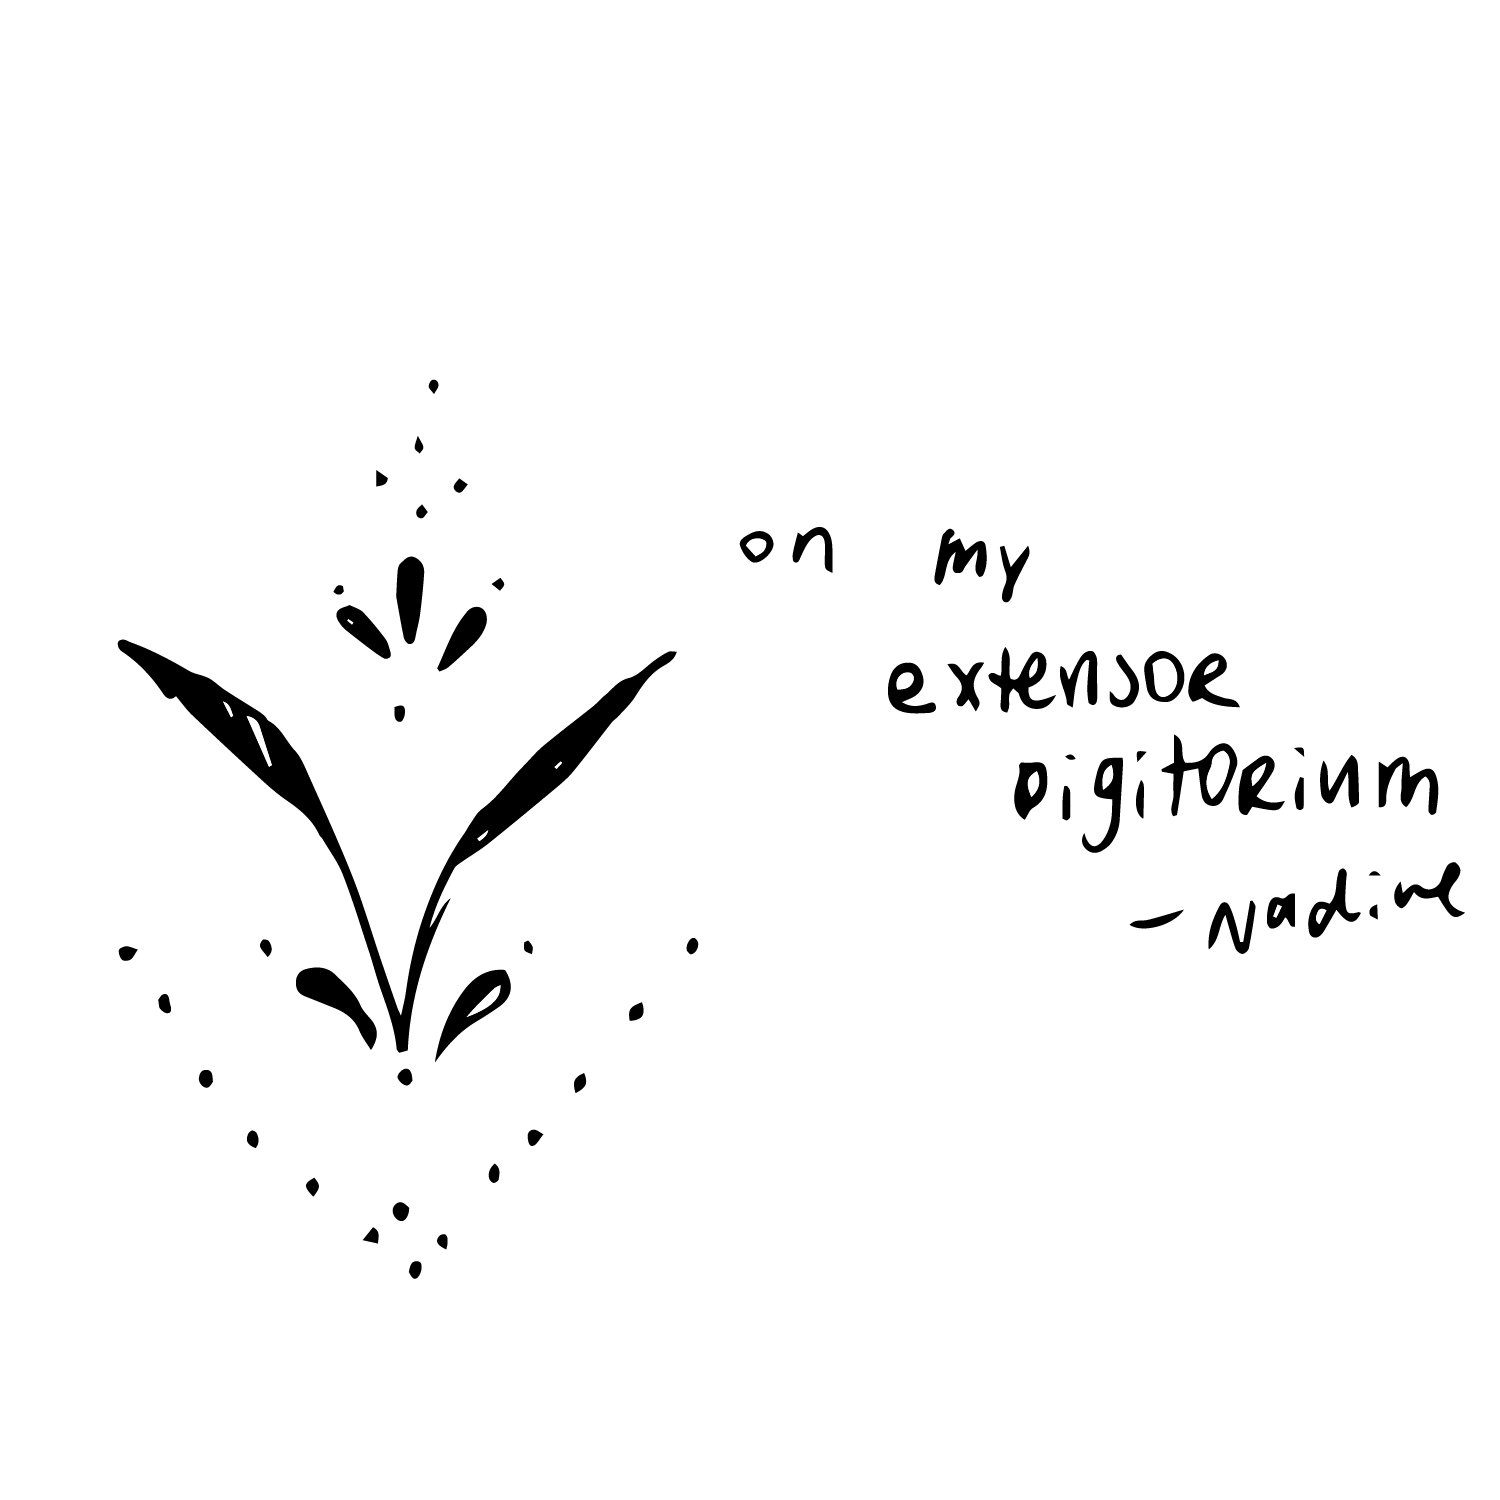 on my
extensor
Digitorium
- Nadine